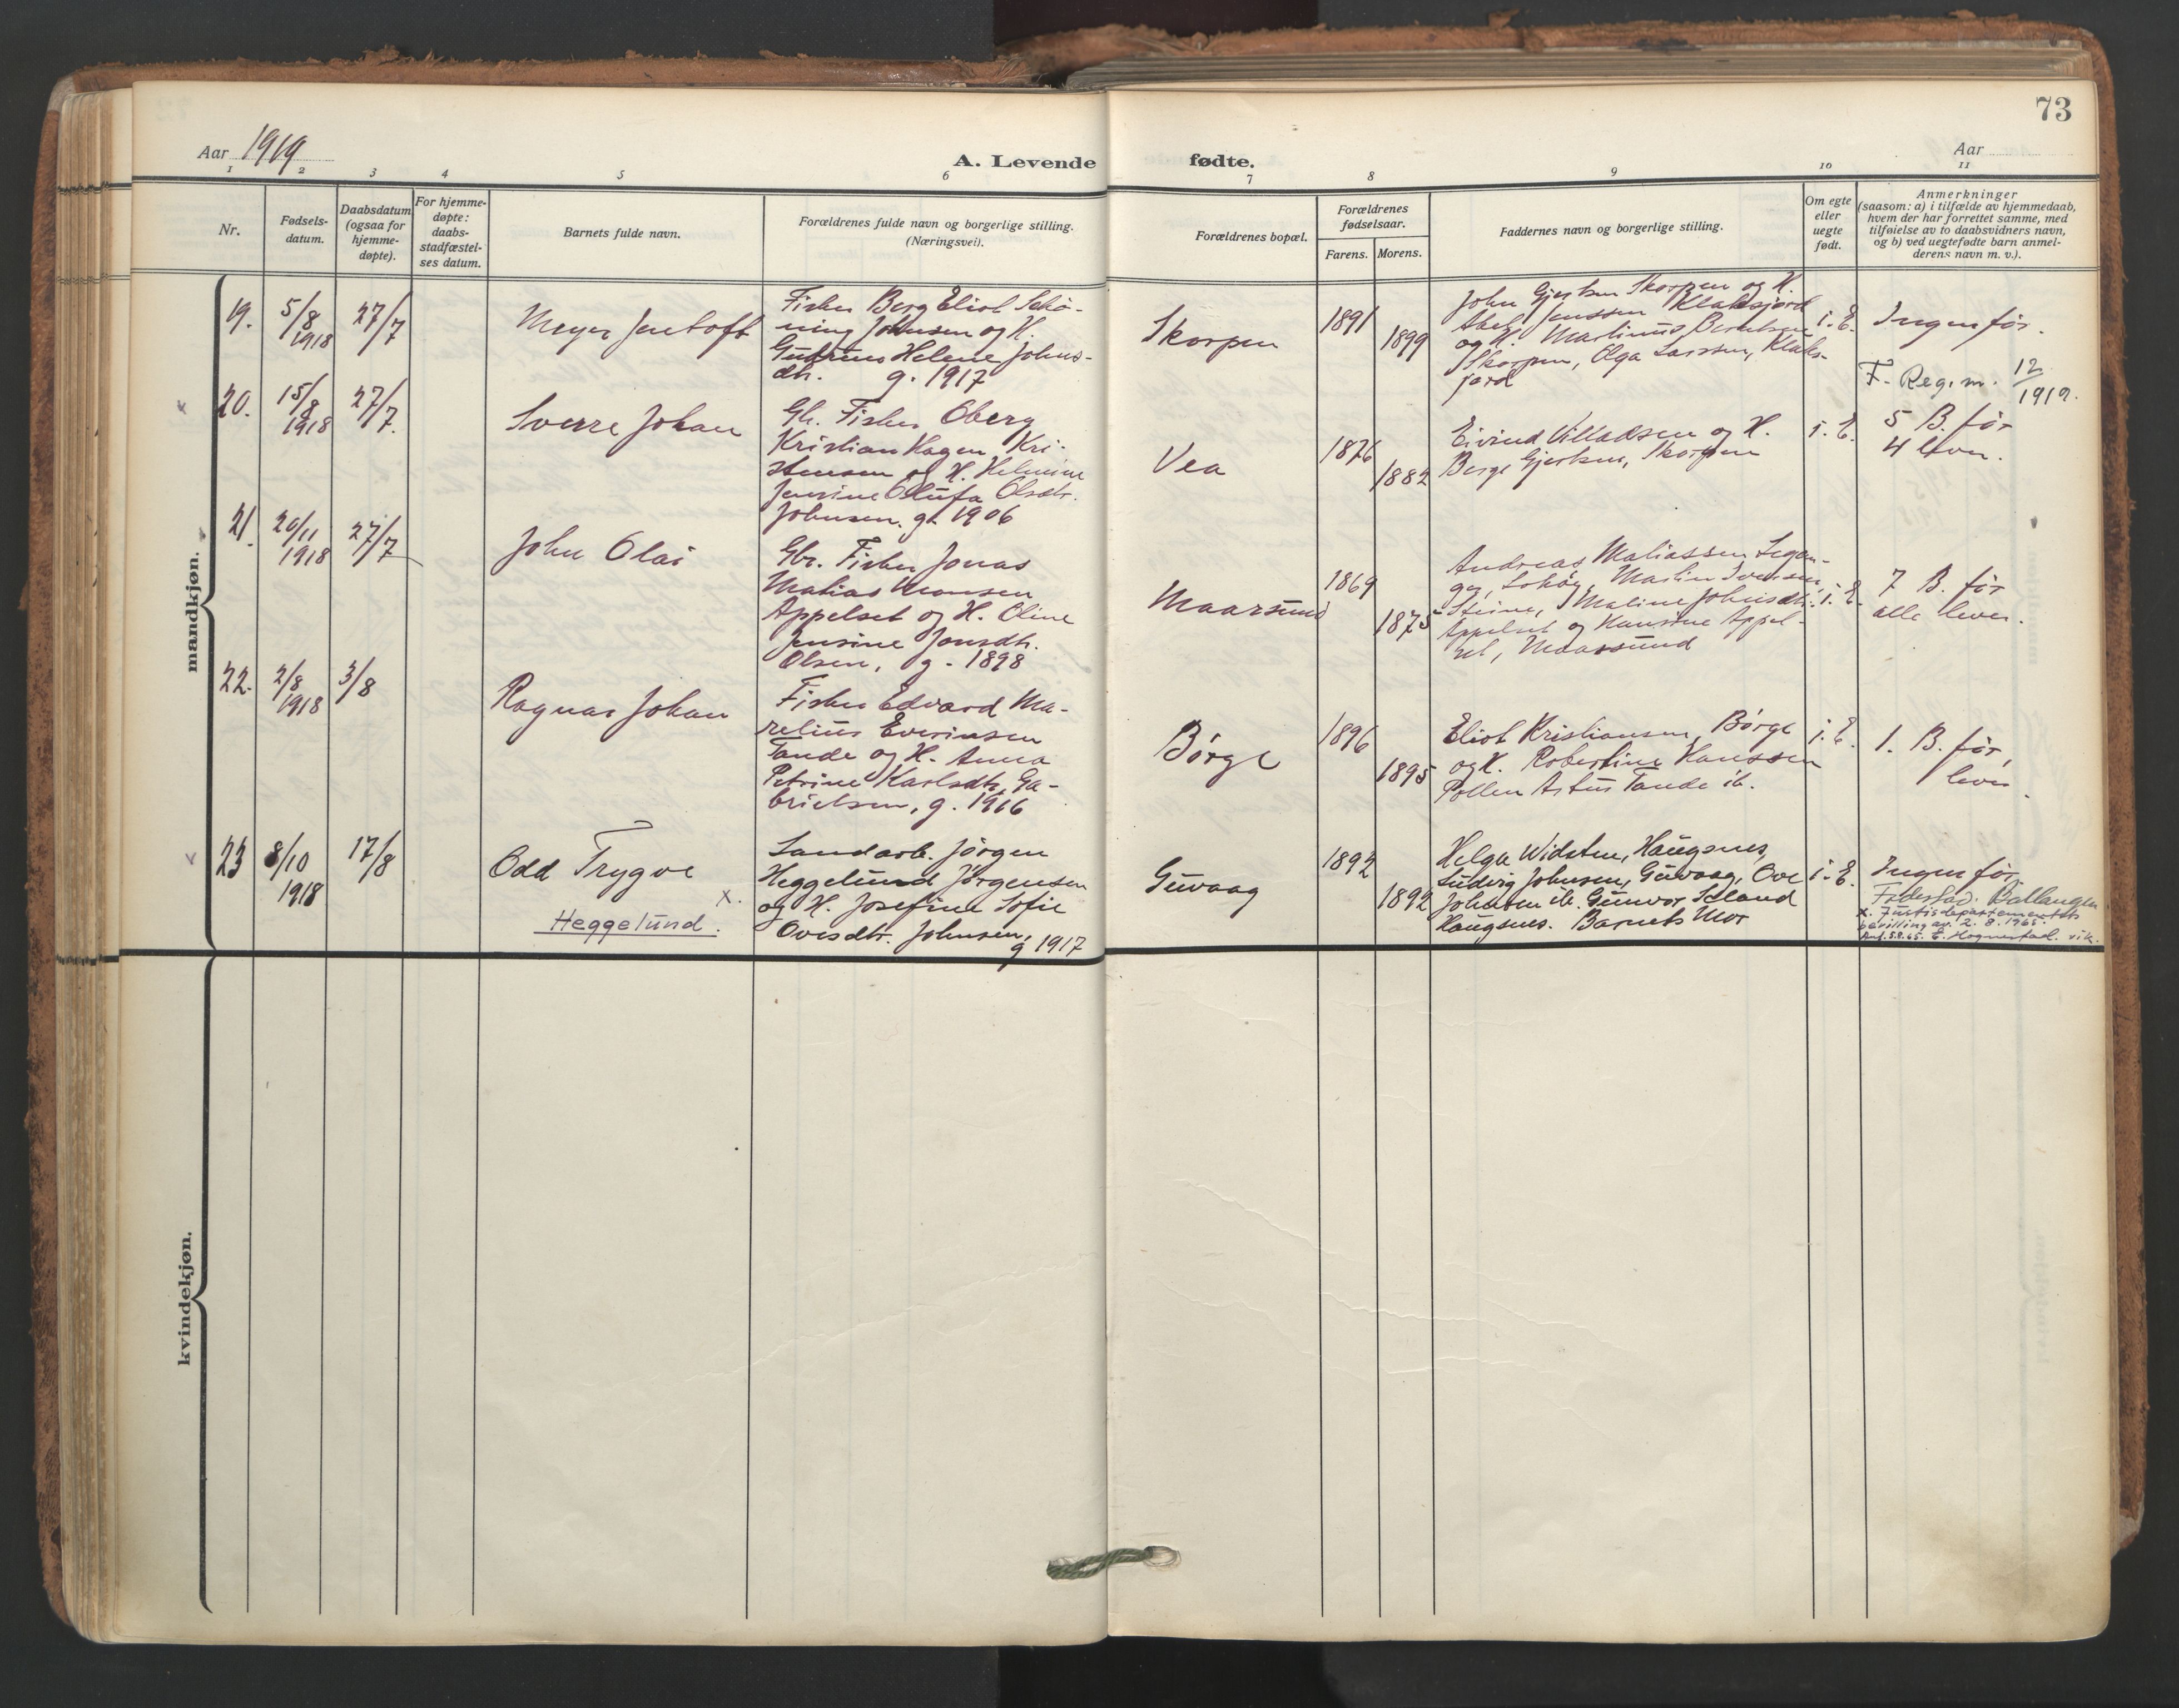 73
Aar 1919
A. Levende
fødte.
Aar
1 2 3 4 5 6 7 8 9 10 11
Nr.
Fødsels-
datum.
Daabsdatum
(ogsaa for
hjemme-
døpte).
For hjemme-
døpte:
daabs-
stadfæstel-
ses datum.
Barnets fulde navn.
Forældrenes fulde navn og borgerlige stilling.
(Næringsvei).
Forældrenes bopæl.
Forældrenes
fødselsaar.
Farens. Morens.
Faddernes navn og borgerlige stilling.
Om egte
eller
uegte
født.
Anmerkninger
(saasom: a) i tilfælde av hjemmedaab,
hvem der har forrettet samme, med
tilføielse av to daabsvidners navn,
og b) ved uegtefødte barn anmel-
derens navn m. v.).
mandkjøn.
19.
5/8
1918
27/7
Meyer Jentoft
Fisker Berg Eliot Schø-
ning Johnsen og H.
Gudrun Helene Johns-
dtr. g. 1917
Skorpen
1891
1899
John Gjertsen Skorpen og H.
Abel Jenssen Klaksjord
og H. Martinus Berntsen
Skorpen, Olga Larssen, Klaks-
jord
i. E.
Ingen før.
F. Reg. m. 12/1919.
20.
15/8
1918
27/7.
Sverre Johan
Gbr. Fisker Oberg
Kristian Hagen Kri-
stensen og H. Helmine
Jensine Olufa Olsdtr.
Johnsen. g. 1906
Vea
1876
1882
Eivind Villadsen og H.
Berge Gjertsen, Skorpen
i. E.
5 B. før
4 lever.
21.
20/11
1918
27/7
John Olai
Gbr. Fisker Jonas
Matias Monsen
Appelset og H. Oline
Jensine Jonsdtr.
Olsen, g. 1898
Maarsund
1869
1875
Andreas Matiassen
Martin Iversen,
Steine, Maline Johnsdtr.
Appelset og Hansine Appel-
set, Maarsund
i. E.
7 B. før
alle lever.
22.
2/8
1918
3/8
Ragnar Johan
Fisker Edvard Ma-
relius Evensen
Tande og H. Anna
Petrine Karlsdtr. Ga-
brielsen, g. 1916
Børge
1896
1895
Eliot Kristiansen, Børge
og H. Robertine Hanssen
Pollen Artur Tande ib.
i. E.
1. B. før,
lever.
23
8/10
1918
17/8
Odd Trygve
x. Heggelund.
Landarb. Jørgen
Heggelund Jørgensen
og H. Josefine Sofie
Ovesdtr. Johnsen,
g 1917
Guvaag
1892
1892
Helga Widsten, Haugsnes,
Ludvig Johnsen, Guvaag, Ove
Johnsen ib. Gunvor Seland
Haugsnes. Barnets Mor
i. E.
Ingen før
Fødested: Ballangen
x. Justisdepartementets
bevilling av 2. 8. 1965.
Anf. 5.8.65. E. Hognestad. vik.
kvindekjøn.